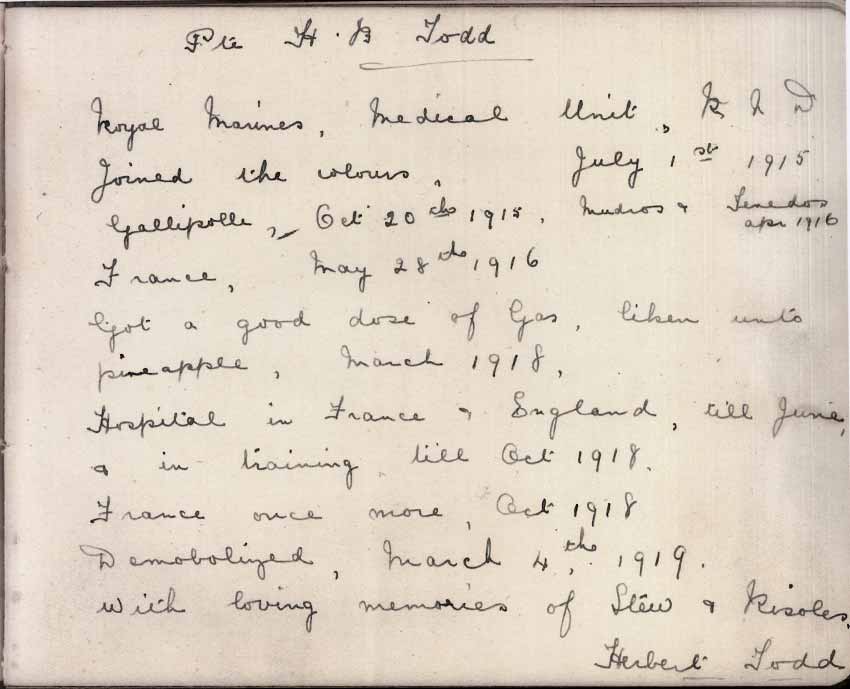 Pte H. B Todd
Royal Marines, Medical Unit, R N D
Joined the colours, July 1st 1915
Gallipolle, Oct 20th 1915. Mudros & Tenedos
apr 1916
France, May 28th 1916
Got a good dose of Gas, liken unto
pineapple, March 1918,
Hospital in France & England, till June,
& in training till Oct 1918.
France once more, Oct 1918
Demobolized, March 4th, 1919.
With loving memories of Stew & Risoles.
Herbert Todd